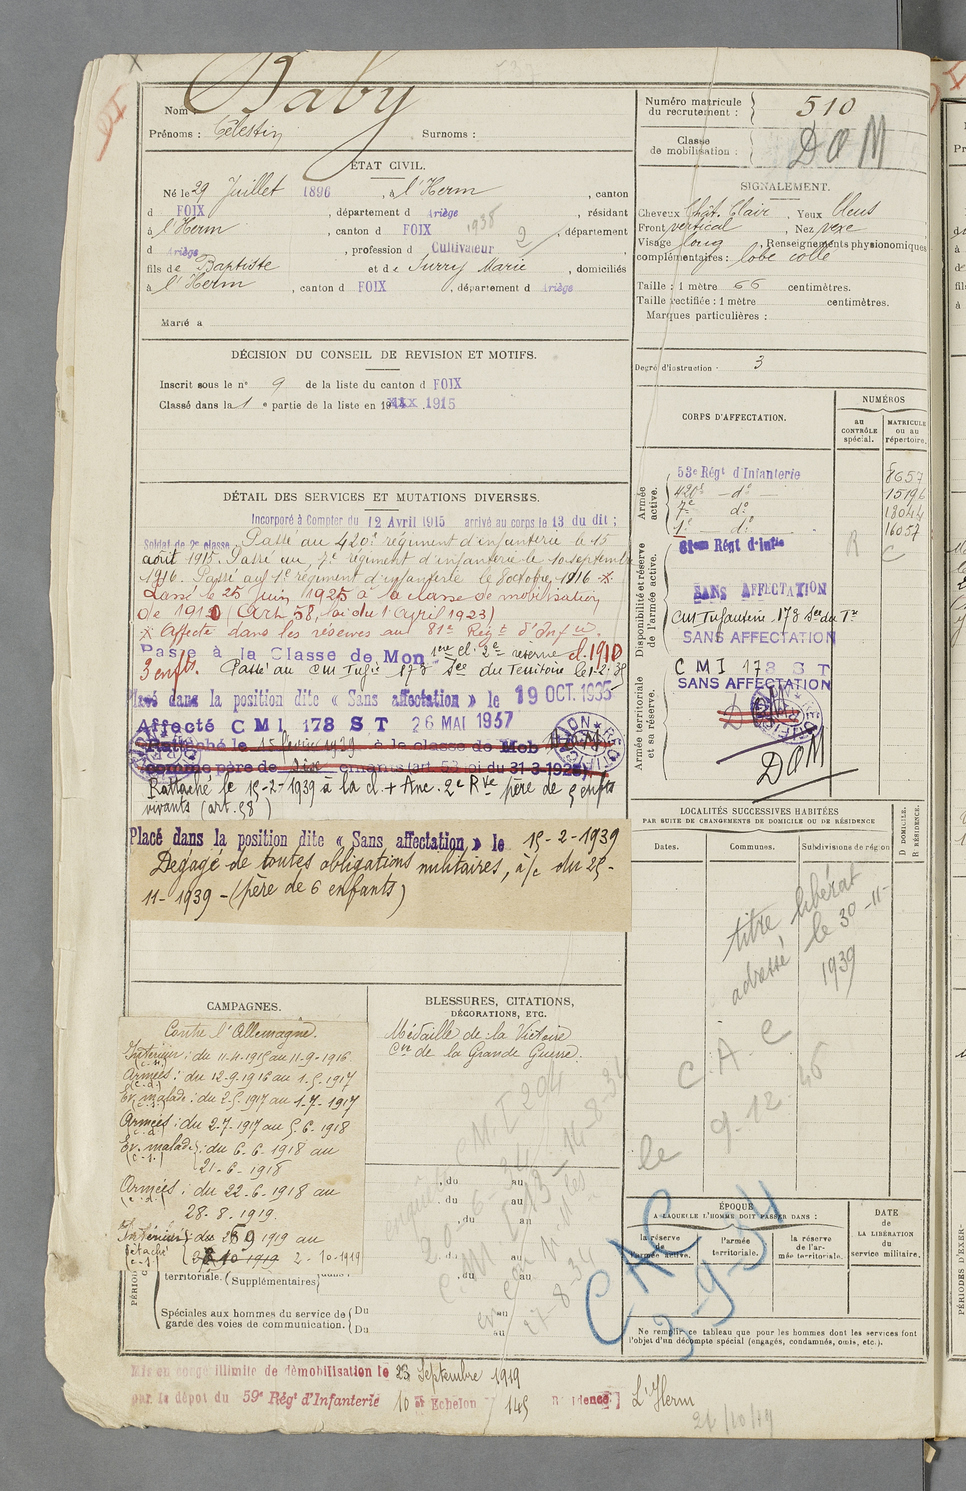 Nom : Baby
Prénoms : Célestin Surnoms :
ÉTAT CIVIL.
Né le 29 Juillet 1896, à l'Herm, canton
d FOIX, département d Ariège, résidant
à l'Herm, canton d FOIX, département
d Ariège, profession de Cultivateur
1938
2
fils de Baptiste et de Surry Marie, domiciliés
à l'Herm, canton d FOIX, département d Ariège
Marié à
DÉCISION DU CONSEIL DE REVISION ET MOTIFS.
Inscrit sous le n° 9 de la liste du canton d FOIX
Classé dans la 1e partie de la liste en 19 1915
DÉTAIL DES SERVICES ET MUTATIONS DIVERSES.
Incorporé à Compter du 12 Avril 1915 arrivé au corps le 13 du dit ;
Soldat de 2e classe. Passé au 420e régiment d'infanterie le 15
août 1915. Passé au 7e régiment d'infanterie le 10 septembre
1916. Passé au 1e régiment d'infanterie le 8 octobre 1916 *
Passé le 25 Juin 1925 à la classe de mobilisation
de 1910 (Art. 58, loi du 1 Avril 1923)
* Affecté dans les réserves au 81e Régt d'Infie.
Passé à la Classe de Mon 1ere cl. 2e réserve cl. 1910
3 enfts. Passé au CM Infie 178 See du Territoire le 1.2.38
Placé dans la position dite « Sans affectation » le 19 OCT. 1935
Affecté C M I 178 S T 26 MAI 1937
Rattaché le 15 février 1939 à la classe de Mob
comme père de six enfants art. 58 loi du 31-3-1928
Rattaché le 15-2-1939 à la cl. + Anc. 2e Rve père de 5 enfts
vivants (art. 58)
Placé dans la position dite « Sans affectation » le 15-2-1939
Dégagé de toutes obligations militaires, à/c du 25-
11-1939 - (père de 6 enfants)
CAMPAGNES.
Contre l'Allemagne.
Intérieur : du 11-4-1915 au 11-9-1916
(c.s.)
Armées : du 12-9-1916 au 1-5-1917
(c.d.)
Ev. malade : du 2-5-1917 au 1-7-1917
Armées : du 2-7-1917 au 5-6-1918
Ev. malade : du 6-6-1918 au
(c.s.) 21-6-1918
Armées : du 22-6-1918 au
(c.d.) 28-8-1919.
Intérieur : du 1919 au
détaché 2-10-1919
territoriale. (Supplémentaires)
Spéciales aux hommes du service de garde des voies de communication. Du
Du
BLESSURES, CITATIONS,
DÉCORATIONS, ETC.
Médaille de la Victoire
Cve de la Grande Guerre.
, du au
, du au
, du au
, du au
, du au
au
au
Mis en congé illimité de démobilisation le 23 Septembre 1919
par le dépôt du 59e Régt d'Infanterie 10 e Echelon 145 Résidence L'Herm
21/10/19
Numéro matricule
du recrutement : 510
Classe
de mobilisation : DOM
SIGNALEMENT.
Cheveux Chât. Clair, Yeux bleus
Front vertical, Nez vexe
Visage long, Renseignements physionomiques
complémentaires : lobe collé
Taille : 1 mètre 66 centimètres.
Taille rectifiée : 1 mètre centimètres.
Marques particulières :
Degré d'instruction : 3
CORPS D'AFFECTATION.
NUMÉROS
au
CONTRÔLE
spécial.
MATRICULE
ou au
répertoire.
Armée
active.
53e Régt d'Infanterie 8657
420e - do - 15196
7e do 18044
1e - do 16057
Disponibilité et réserve
de l'armée active.
81eme Régt d'Infie
R
C
SANS AFFECTATION
CM Infanterie 178 See du Tre
SANS AFFECTATION
Armée territoriale
et sa réserve.
C M I 178 S T
SANS AFFECTATION
DOM
LOCALITÉS SUCCESSIVES HABITÉES
PAR SUITE DE CHANGEMENTS DE DOMICILE OU DE RÉSIDENCE
Dates. Communes. Subdivisions de région
D DOMICILE.
R RÉSIDENCE.
titre libérat
adressé le 30-11-
1939
C.A.C
le 9-12 46
ÉPOQUE
A LAQUELLE L'HOMME DOIT PASSER DANS :
la réserve
de
l'armée active.
l'armée
territoriale.
la réserve
de l'ar-
mée territoriale.
DATE
de
LA LIBÉRATION
du
service militaire.
CAC
3-9-34
Ne remplir ce tableau que pour les hommes dont les services font
l'objet d'un décompte spécial (engagés, condamnés, omis, etc.).